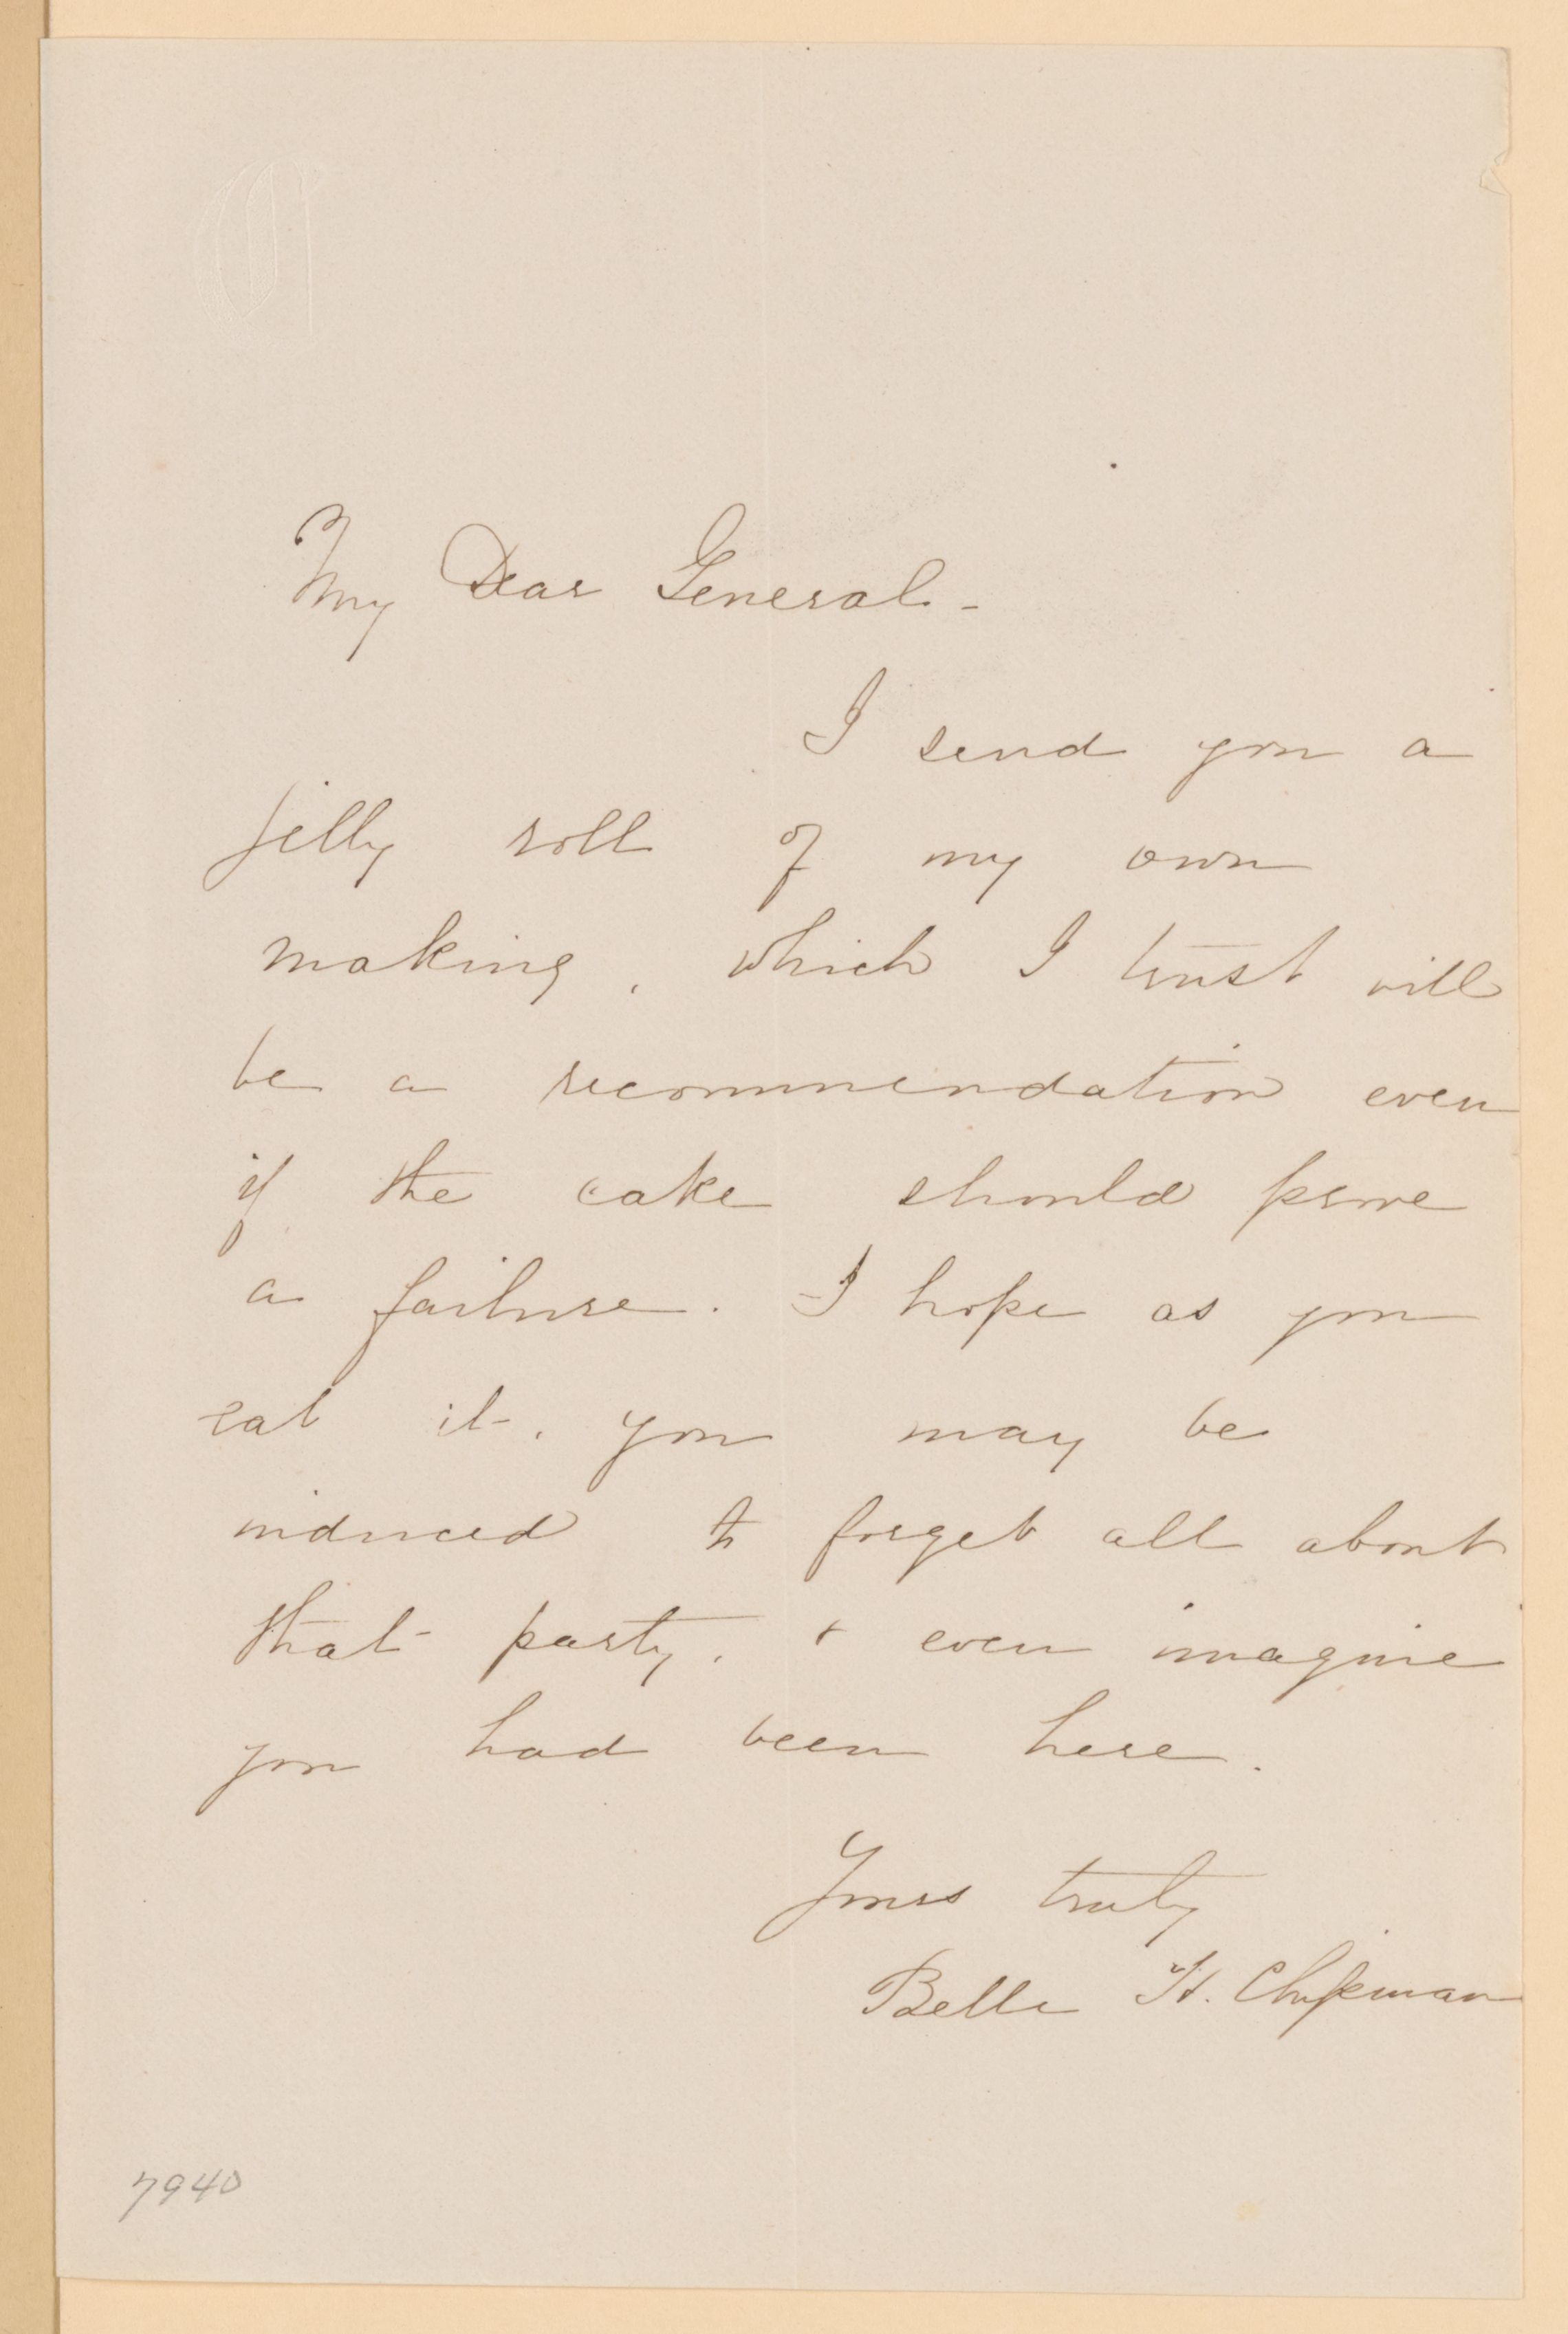 My Dear General -
I send you a
jelly roll of my own
making, which I trust will
be a recommendation even
if the cake should prove
a failure. I hope as you
eat it, you may be
induced to forget all about
that party, & even imagine
you had been here.
Yours truly
Belle H. Chapman
7940